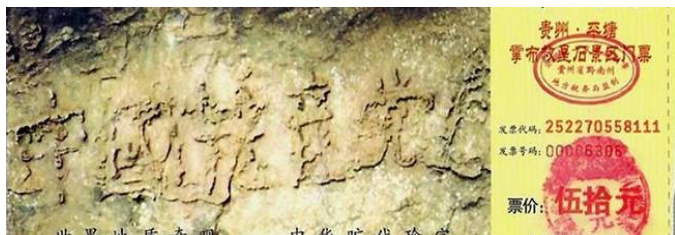 中国共产党亡
世界地质奇观 中华旷代珍宝
贵州·平塘
掌布救星石景区门票
贵州省黔南州
地方税务局监制
发票代码:252270558111
发票号码:00006306
票价:伍拾元